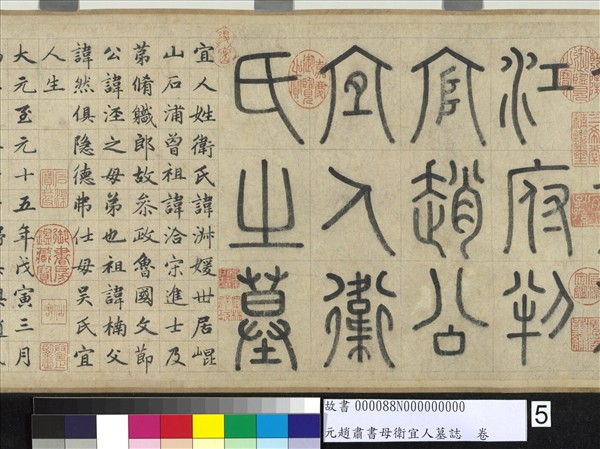 江府判
官趙公
宜人衛
氏之墓
宜人姓衛氏諱淑媛丗居崐
山石浦曾祖諱洽宋進士及
第脩職郎故叅政魯國文節
公諱涇之母弟也祖諱楠父
諱然俱隐德弗仕母吳氏宜
人生
大元至元十五年戊寅三月
嘉慶御覽之寶
御書房鑑藏寶
故書 000088N000000000
元趙肅書母衛宜人墓誌 卷
5